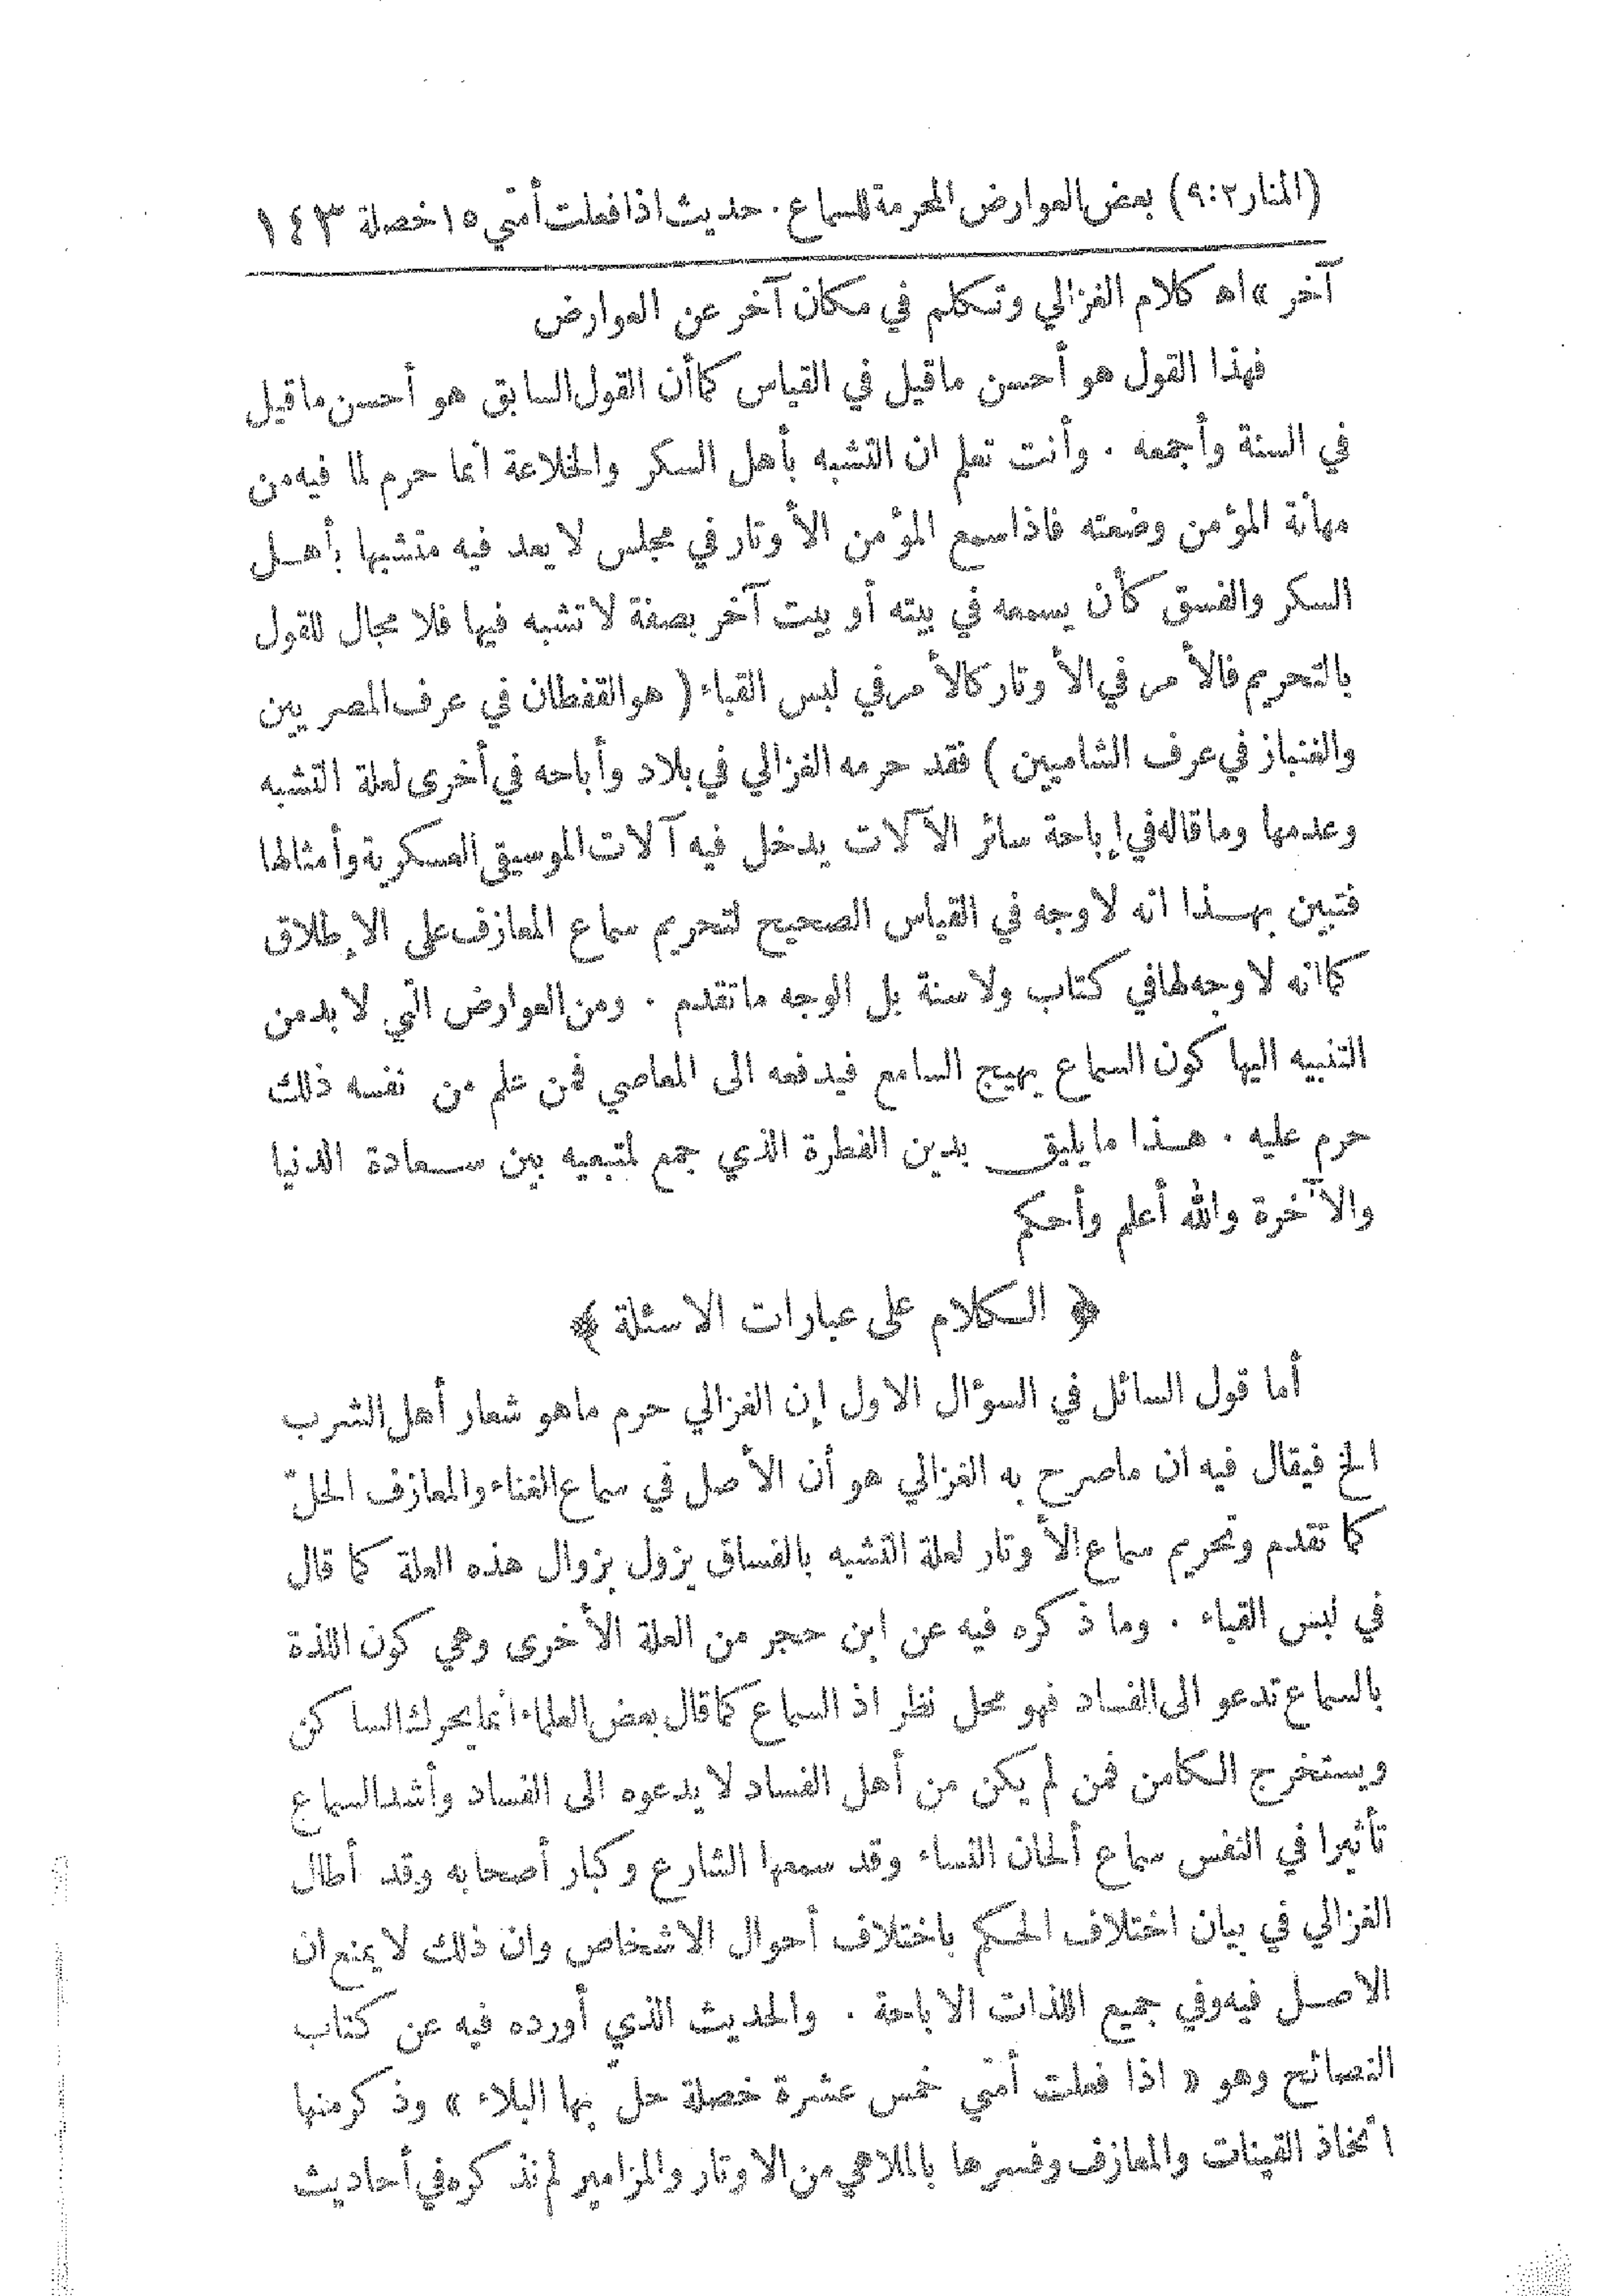 (المنار ٩:٢) بعض العوارض المحرمة للسماع . حديث اذا فعلت أمتي ١٥ خصلة ١٤٣
آخر » اه كلام الغزالي وتكلم في مكان آخر عن العوارض
فهذا القول هو أحسن ماقيل في القياس كما أن القول السابق هو أحسن ماقيل
في السنة وأجمعه . وأنت تعلم ان التشبه بأهل السكر والخلاعة انما حرم لما فيه من
مهانة المؤمن وضعته فاذا سمع المؤمن الأوتار في مجلس لا يعد فيه متشبها بأهل
السكر والفسق كأن يسمعه في بيته أو بيت آخر بصفة لا تشبه فيها فلا مجال للقول
بالتحريم فالأمر في الأوتار كالأمر في لبس القباء ( هو القفطان في عرف المصريين
والغنباز في عرف الشاميين ) فقد حرمه الغزالي في بلاد وأباحه في أخرى لعلة التشبه
وعدمها وما قاله في إباحة سائر الآلات يدخل فيه آلات الموسيقى العسكرية وأمثالها
فتبين بهذا انه لا وجه في القياس الصحيح لتحريم سماع المعازف على الإطلاق
كما انه لا وجه لها في كتاب ولا سنة بل الوجه ما تقدم . ومن العوارض التي لا بد من
التنبيه اليها كون السماع يهيج السامع فيدفعه الى المعاصي فمن علم من نفسه ذلك
حرم عليه . هذا ما يليق بدين الفطرة الذي جمع لمتبعيه بين سعادة الدنيا
والآخرة والله أعلم وأحكم
﴿ الكلام على عبارات الاسئلة ﴾
أما قول السائل في السؤال الاول إن الغزالي حرم ماهو شعار أهل الشرب
الخ فيقال فيه ان ماصرح به الغزالي هو أن الأصل في سماع الغناء والمعازف الحلّ
كما تقدم وتحريم سماع الأوتار لعلة التشبه بالفساق يزول بزوال هذه العلة كما قال
في لبس القباء . وما ذكره فيه عن ابن حجر من العلة الأخرى وهي كون اللذة
بالسماع تدعو الى الفساد فهو محل نظر اذ السماع كما قال بعض العلماء انما يحرك الساكن
ويستخرج الكامن فمن لم يكن من أهل الفساد لا يدعوه الى الفساد وأشد السماع
تأثيرا في النفس سماع ألحان النساء وقد سمعها الشارع وكبار أصحابه وقد أطال
الغزالي في بيان اختلاف الحكم باختلاف أحوال الاشخاص وان ذلك لا يمنع ان
الاصل فيه وفي جميع اللذات الاباحة . والحديث الذي أورده فيه عن كتاب
النصائح وهو « اذا فعلت أمتي خمس عشرة خصلة حلّ بها البلاء » وذكر منها
اتخاذ القينات والمعازف وفسرها بالملاهي من الاوتار والمزامير لم نذكره في أحاديث